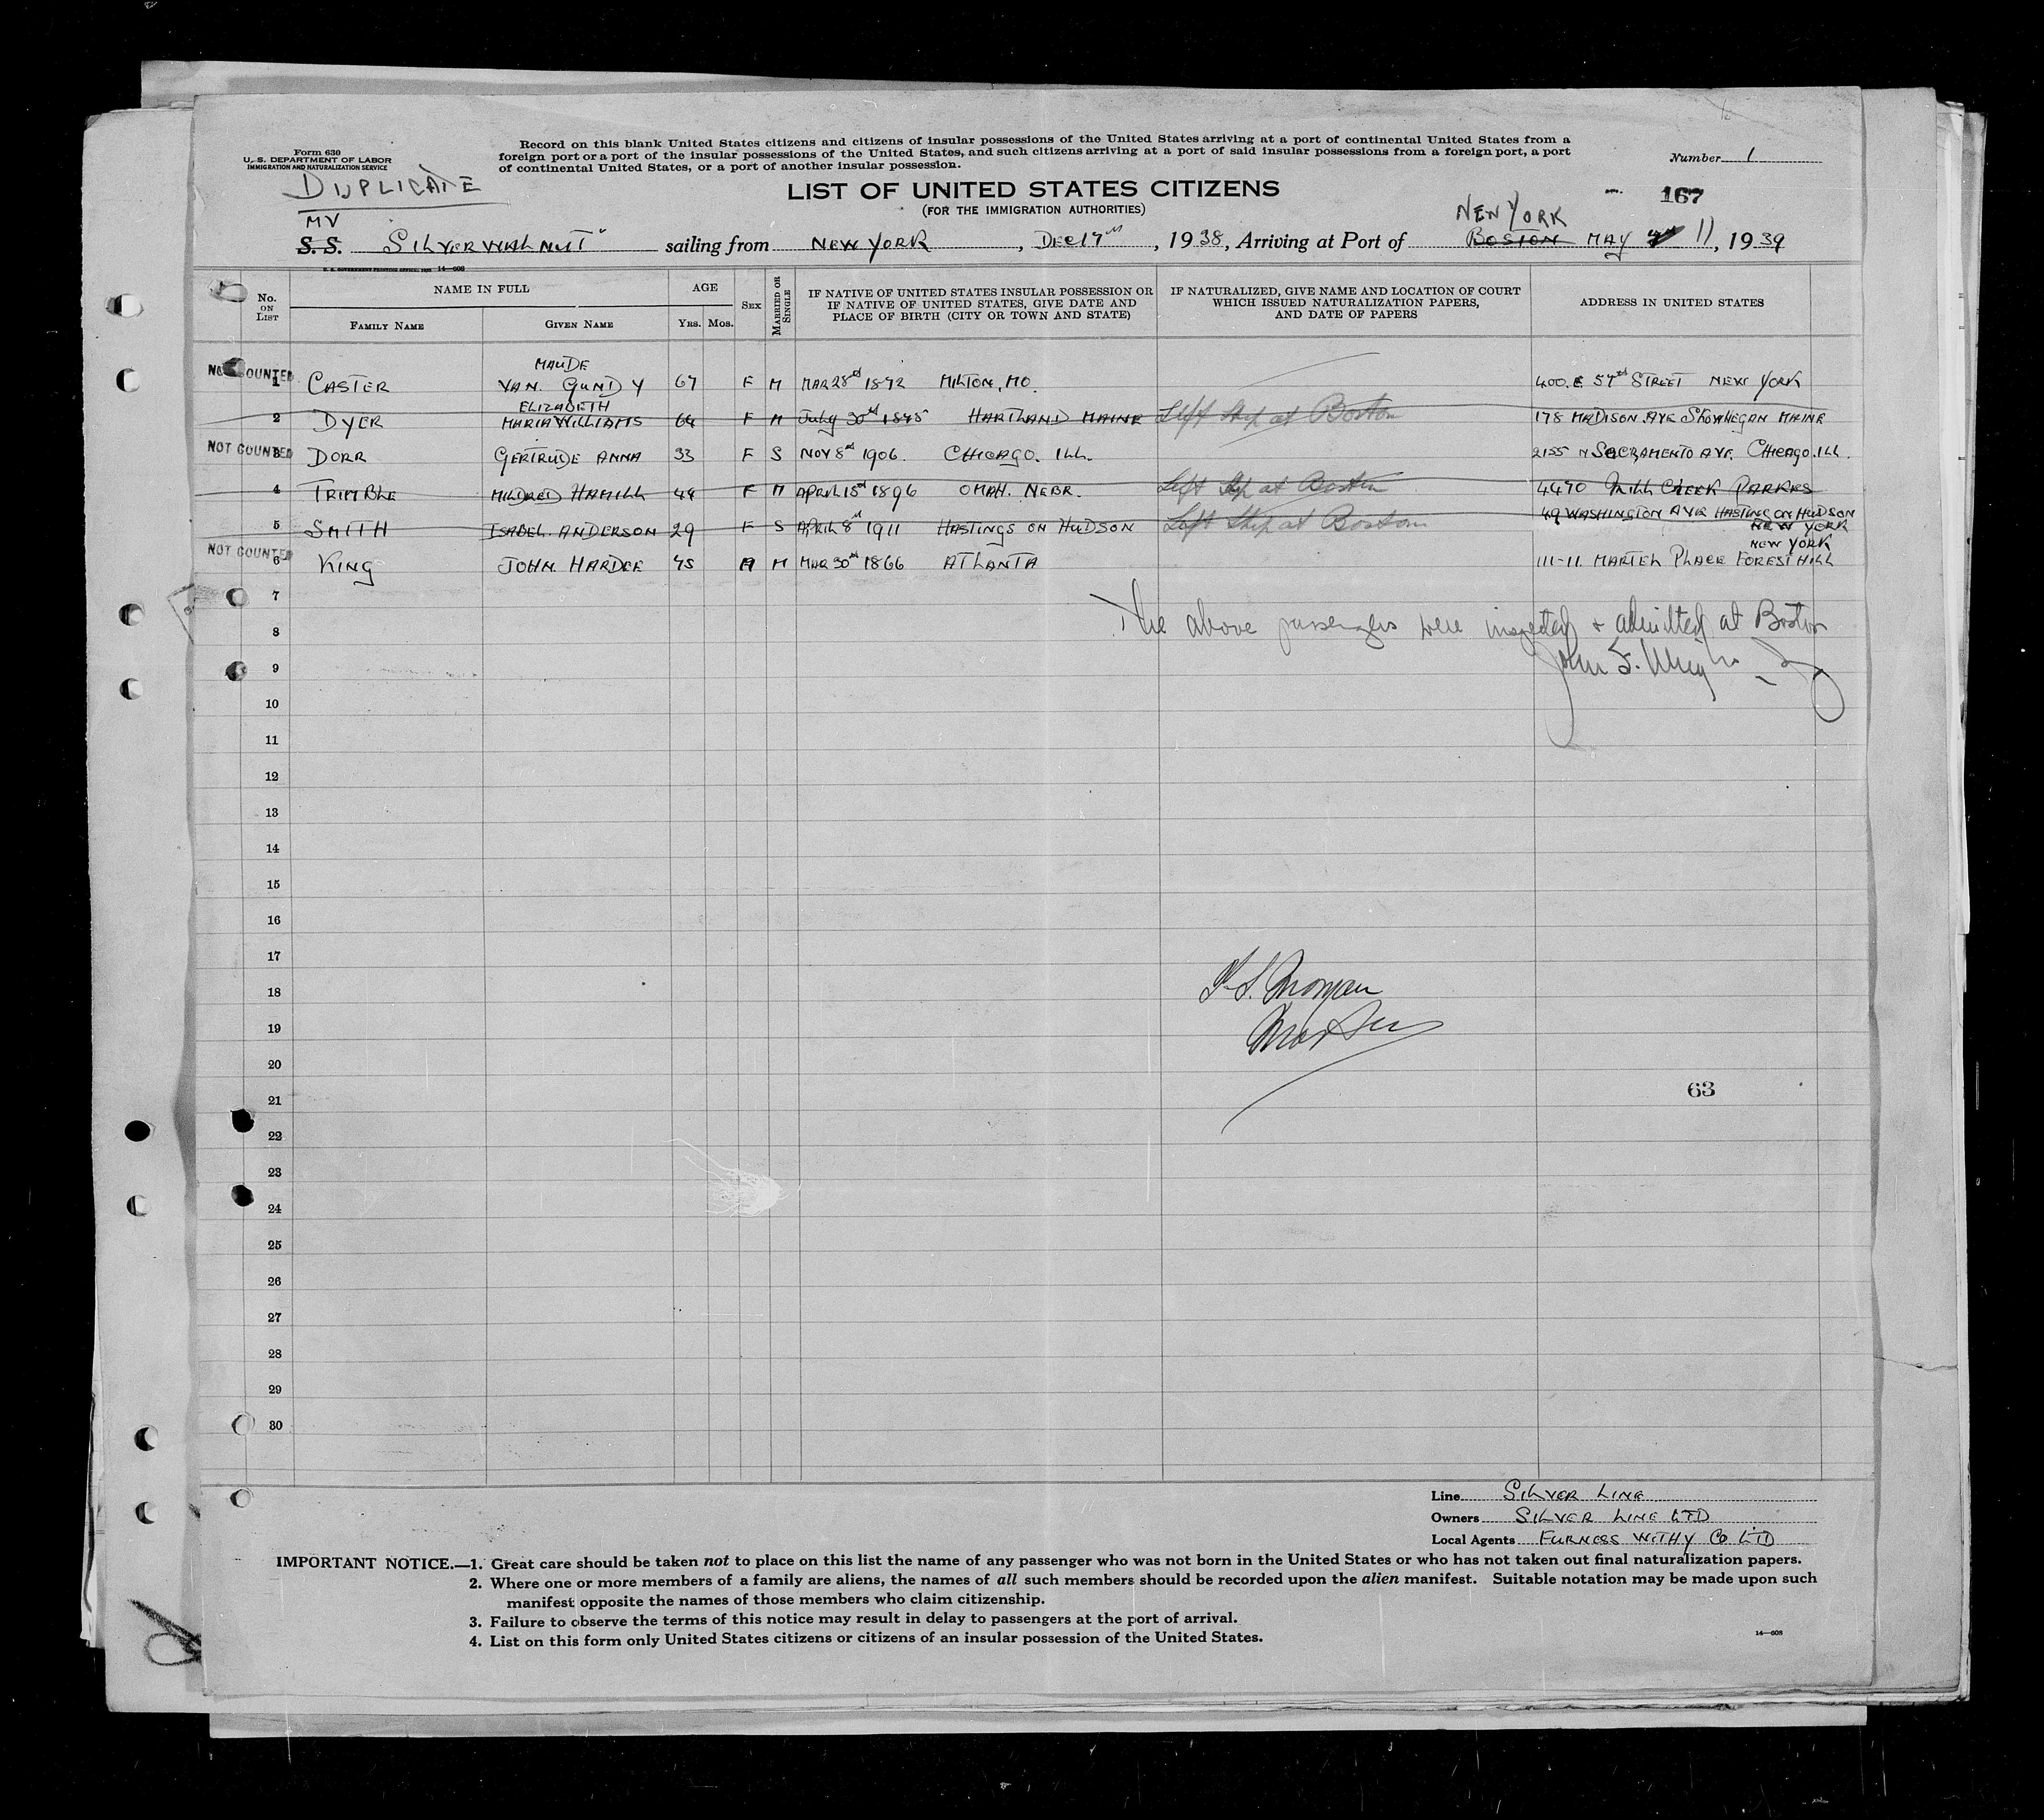 Form 630
U. S. DEPARTMENT OF LABOR
IMMIGRATION AND NATURALIZATION SERVICE
DUPLICATE
Record on this blank United States citizens and citizens of insular possessions of the United States arriving at a port of continental United States from a
foreign port or a port of the insular possessions of the United States, and such citizens arriving at a port of said insular possessions from a foreign port, a port
of continental United States, or a port of another insular possession.
Number 1
LIST OF UNITED STATES CITIZENS
(FOR THE IMMIGRATION AUTHORITIES)
167
NEW YORK
MV
S.S. SILVERWALNUT" sailing from NEW YORK, DEC 17th, 1938, Arriving at Port of BOSTON MAY 11, 1939
U. S. GOVERNMENT PRINTING OFFICE: 1938 14—608
No. ON LIST
NAME IN FULL
FAMILY NAME
GIVEN NAME
AGE
YRS. MOS.
SEX
MARRIED OR SINGLE
IF NATIVE OF UNITED STATES INSULAR POSSESSION OR
IF NATIVE OF UNITED STATES, GIVE DATE AND
PLACE OF BIRTH (CITY OR TOWN AND STATE)
IF NATURALIZED, GIVE NAME AND LOCATION OF COURT
WHICH ISSUED NATURALIZATION PAPERS,
AND DATE OF PAPERS
ADDRESS IN UNITED STATES
MAUDE
NOT COUNTED 1 CASTER VAN. GUNDY 67 F M MAR 28th 1872 MILTON, MO. 400. E 57th STREET NEW YORK
ELIZABETH
2 DYER MARIA WILLIAMS 64 F M July 30th 1875 HARTLAND MAINE Left Ship at Boston 178 MADISON AVE SKOWHEGAN MAINE
NOT COUNTED 3 DORR GERTRUDE ANNA 33 F S NOV 8th 1906. CHICAGO. ILL. 2155 N SACRAMENTO AVE. CHICAGO. ILL.
4 TRIMBLE MILDRED HAMILL 44 F M APRIL 15th 1896 OMAH. NEBR. Left Ship at Boston 4470 MILL CREEK PARKRS
5 SMITH ISABEL. ANDERSON 29 F S APRIL 8th 1911 HASTINGS ON HUDSON Left Ship at Boston 49 WASHINGTON AVE HASTING ON HUDSON
NEW YORK
NEW YORK
NOT COUNTED 6 KING JOHN. HARDEE 75 M M MAR 30th 1866 ATLANTA 111-11. MARTEL PLACE FOREST HILL
7
The above passengers were inspected & admitted at Boston
8
9
10
11
12
13
14
15
16
17
18
19
20
63
21
22
23
24
25
26
27
28
29
30
Line SILVER LINE
Owners SILVER LINE LTD
Local Agents FURNESS WITHY Co LTD
IMPORTANT NOTICE.—1. Great care should be taken not to place on this list the name of any passenger who was not born in the United States or who has not taken out final naturalization papers.
2. Where one or more members of a family are aliens, the names of all such members should be recorded upon the alien manifest. Suitable notation may be made upon such
manifest opposite the names of those members who claim citizenship.
3. Failure to observe the terms of this notice may result in delay to passengers at the port of arrival.
4. List on this form only United States citizens or citizens of an insular possession of the United States.
14—608